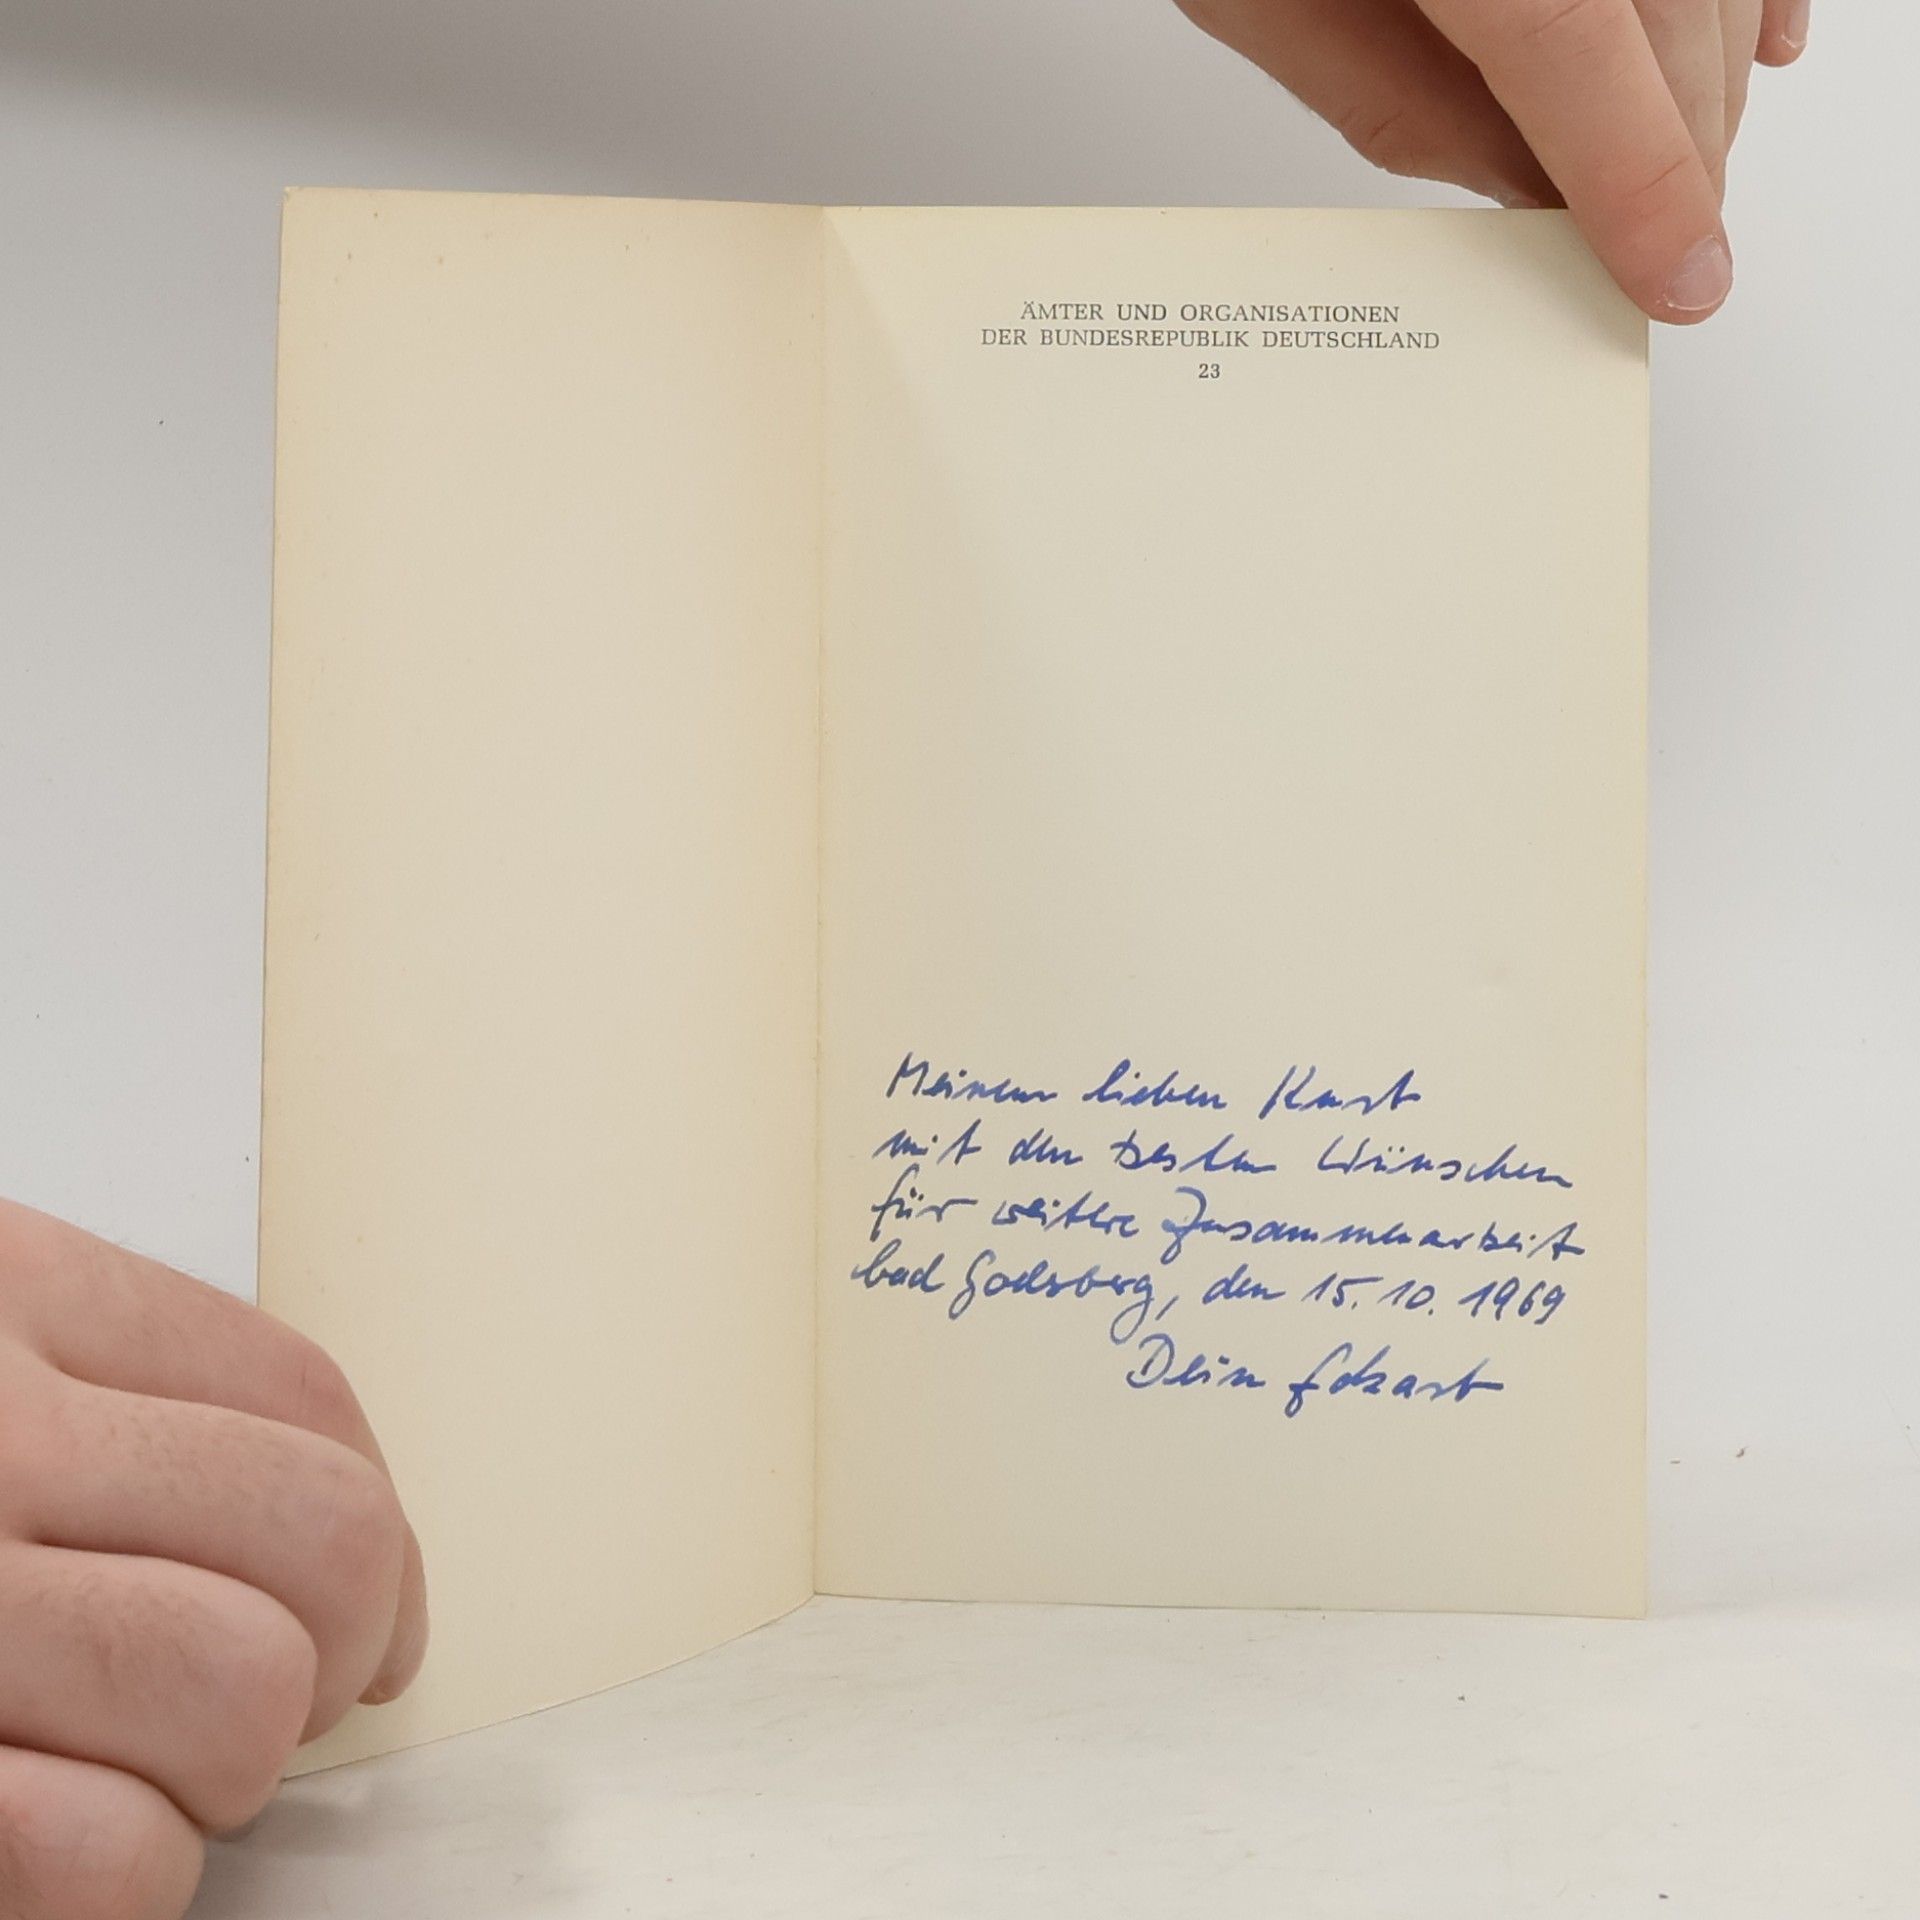 ÄMTER UND ORGANISATIONEN
DER BUNDESREPUBLIK DEUTSCHLAND
23
Meinem lieben Kurt
mit den besten Wünschen
für weitere Zusammenarbeit
bad Godesberg, den 15. 10. 1969
Dein Eckart